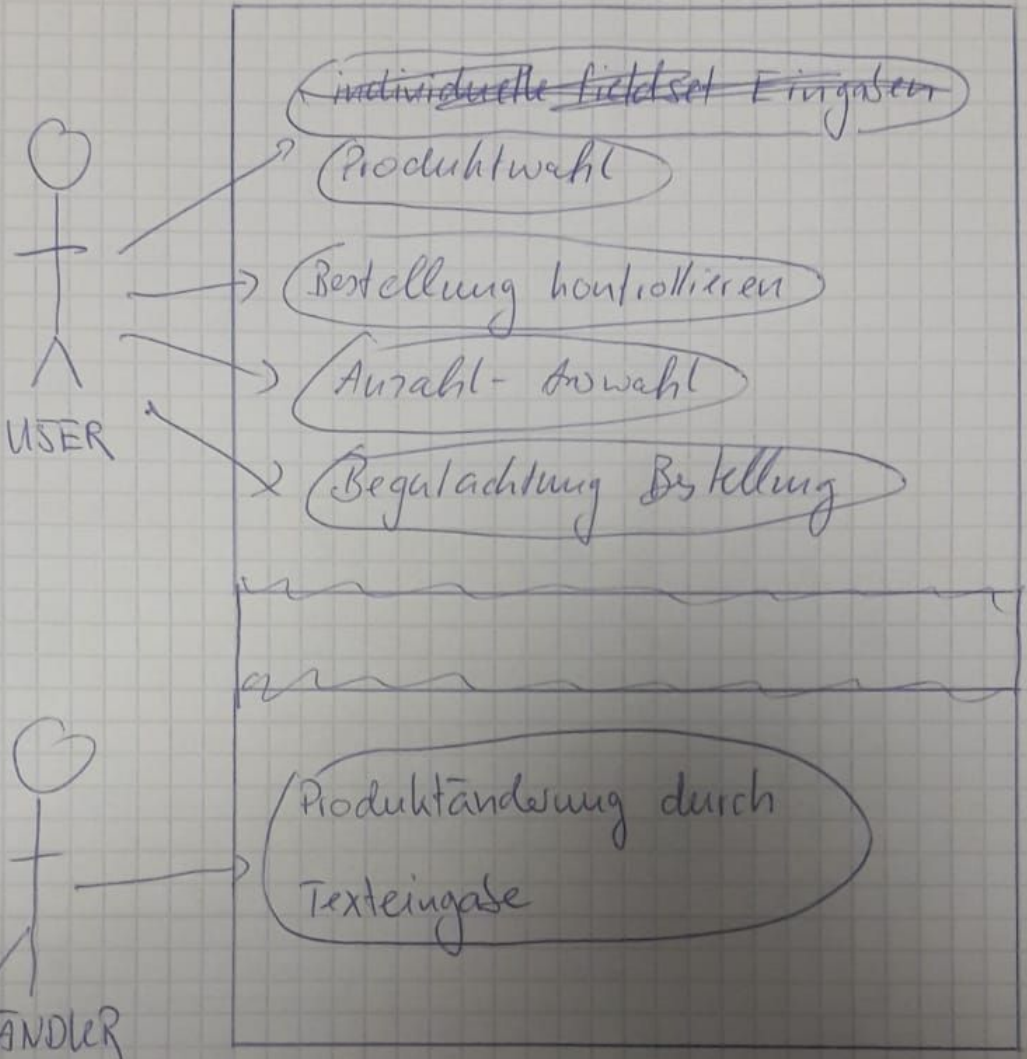 individuelle fieldset Eingaben
Produktwahl
Bestellung kontrollieren
Anzahl- Auswahl
USER
Begutachtung Bestellung
Produktänderung durch
Texteingabe
ÄNDLER